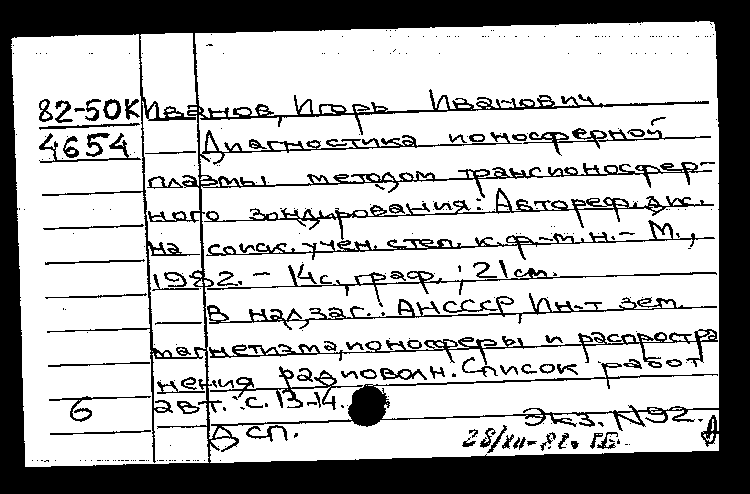 82-50К Иванов, Игорь Иванович.
4654 Диагностика ионосферной
плазмы методом трансионосфер-
ного зондирования: Автореф. дис.
на соиск. учен. степ. к.ф.-м.н. - М.,
1982. - 14с., граф. ; 21см.
В надзаг.: АН СССР, Ин-т зем.
магнетизма, ионосферы и распростра
нения радиоволн. Список работ
6 авт.: с. 13-14.
Дсп. Экз. N92.
28/XII-82г.